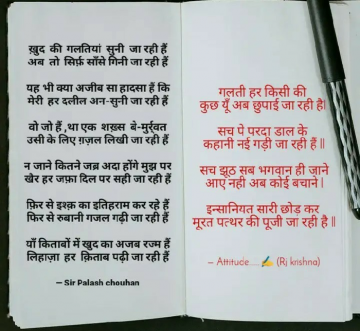 ख़ुद की गलतियां सुनी जा रही हैं
अब तो सिर्फ़ साँसे गिनी जा रही हैं
यह भी क्या अजीब सा हादसा हैं कि
मेरी हर दलील अन-सुनी जा रही हैं
वो जो हैं ,था एक शख़्स बे-मुर्र्वत
उसी के लिए ग़ज़ल लिखी जा रही हैं
न जाने कितने जब्र अदा होंगे मुझ पर
खैर हर जफ़ा दिल पर सही जा रही हैं
फ़िर से इश्क़ का इतिहराम कर रहे हैं
फिर से रुबानी गजल गढ़ी जा रही हैं
याँ किताबों में खुद का अजब रज्म हैं
लिहाज़ा हर क़िताब पढ़ी जा रही हैं
— Sir Palash chouhan
गलती हर किसी की
कुछ यूँ अब छुपाई जा रही है|
सच पे परदा डाल के
कहानी नई गड़ी जा रही हैं ||
सच झूठ सब भगवान ही जाने
आए नही अब कोई बचाने |
इन्सानियत सारी छोड़ कर
मूरत पत्थर की पूजी जा रही है ||
— Attitude....✍️ (Rj krishna)